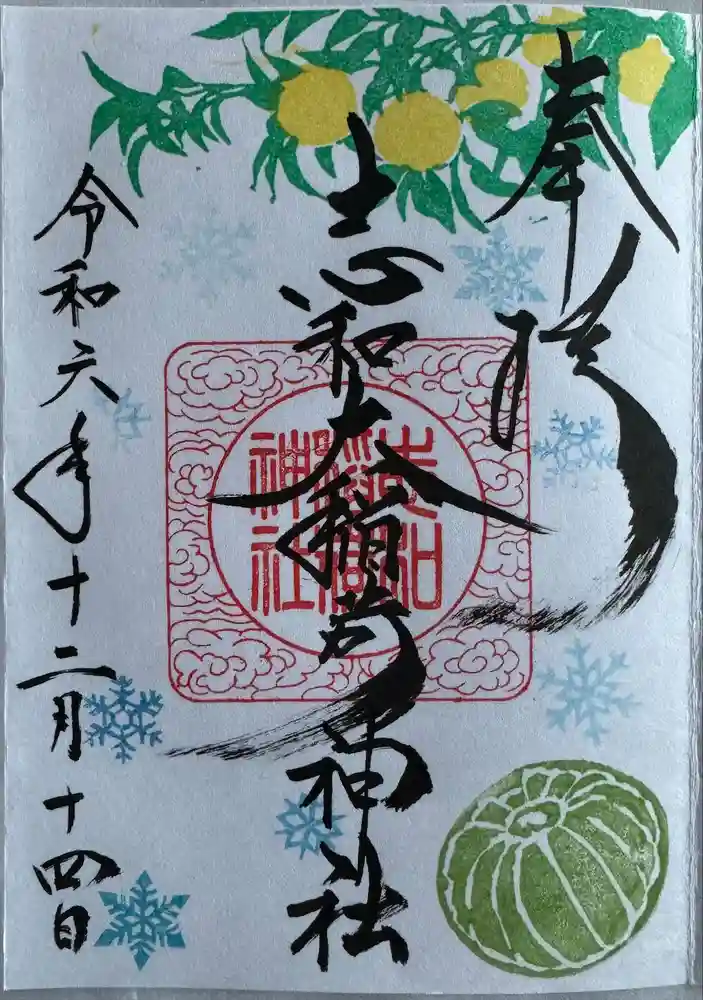 奉拝
志和大稲荷神社
令和六年十二月十四日
志和
稲荷
神社